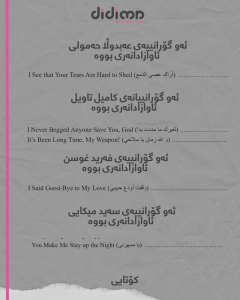 didimn
ئەو گۆرانییەی عەبدوڵا حەمولی
ئاوازادانەری بووە
I See that Your Tears Are Hard to Shed (أراك عصي الدمع) ........................
ئەو گۆرانییانەی کامیل تاویل
ئاوازادانەری بووە
I Never Begged Anyone Save You, God (لغيرك ما مددت يدا) ........................
It's Been Long Time, My Weapon! (و الله زمان يا سلاحي) ........................
ئەو گۆرانییەی فەرید غوسن
ئاوازادانەری بووە
I Said Good-Bye to My Love (وقفت أودع حبيبي) ........................
ئەو گۆرانییەی سەید میکایی
ئاوازادانەری بووە
You Make Me Stay up the Night (يا مسهرني) ........................
کۆتایی